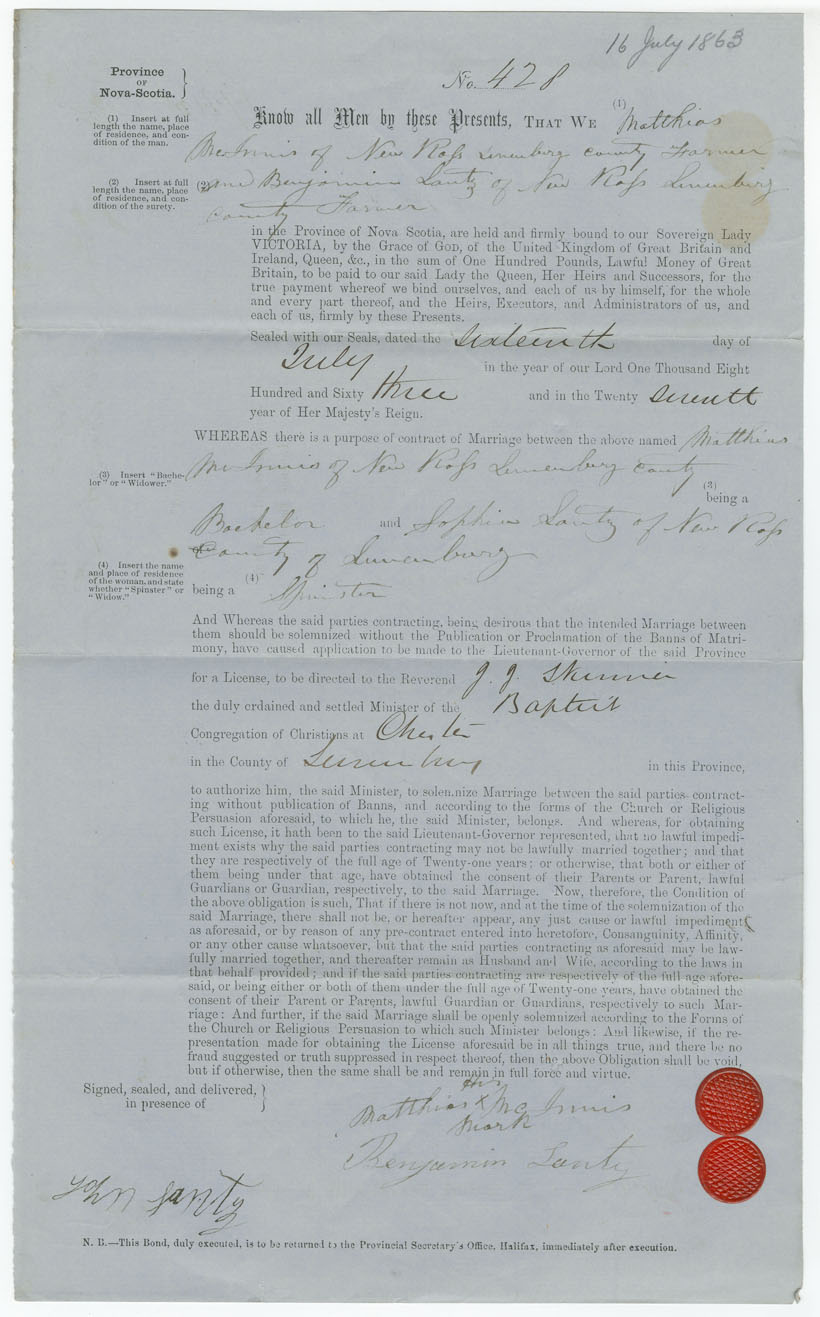 16 July 1863
Province
OF
Nova-Scotia.
No. 428
(1) Insert at full
length the name, place
of residence, and con-
dition of the man.
Know all Men by these Presents, THAT WE (1) Matthias
McInnis of New Ross Lunenburg County Farmer
(2) Insert at full
length the name, place
of residence, and con-
dition of the surety.
(2) and Benjamin Lantz of New Ross Lunenburg
County Farmer
in the Province of Nova Scotia, are held and firmly bound to our Sovereign Lady
VICTORIA, by the Grace of GOD, of the United Kingdom of Great Britain and
Ireland, Queen, &c., in the sum of One Hundred Pounds, Lawful Money of Great
Britain, to be paid to our said Lady the Queen, Her Heirs and Successors, for the
true payment whereof we bind ourselves, and each of us by himself, for the whole
and every part thereof, and the Heirs, Executors, and Administrators of us, and
each of us, firmly by these Presents.
Sealed with our Seals, dated the Sixteenth day of
July in the year of our Lord One Thousand Eight
Hundred and Sixty three and in the Twenty Seventh
year of Her Majesty's Reign.
WHEREAS there is a purpose of contract of Marriage between the above named Matthias
McInnis of New Ross Lunenburg County
(3) Insert "Bache-
lor" or "Widower."
(3)
being a
Bachelor and Sophia Lantz of New Ross
County of Lunenburg
(4) Insert the name
and place of residence
of the woman, and state
whether "Spinster" or
"Widow."
being a (4) Spinster
And Whereas the said parties contracting, being desirous that the intended Marriage between
them should be solemnized without the Publication or Proclamation of the Banns of Matri-
mony, have caused application to be made to the Lieutenant-Governor of the said Province
for a License, to be directed to the Reverend J. J. Skinner
the duly ordained and settled Minister of the Baptist
Congregation of Christians at Chester
in the County of Lunenburg in this Province,
to authorize him, the said Minister, to solemnize Marriage between the said parties contract-
ing without publication of Banns, and according to the forms of the Church or Religious
Persuasion aforesaid, to which he, the said Minister, belongs. And whereas, for obtaining
such License, it hath been to the said Lieutenant-Governor represented, that no lawful impedi-
ment exists why the said parties contracting may not be lawfully married together; and that
they are respectively of the full age of Twenty-one years; or otherwise, that both or either of
them being under that age, have obtained the consent of their Parents or Parent, lawful
Guardians or Guardian, respectively, to the said Marriage. Now, therefore, the Condition of
the above obligation is such, That if there is not now, and at the time of the solemnization of the
said Marriage, there shall not be, or hereafter appear, any just cause or lawful impediment
as aforesaid, or by reason of any pre-contract entered into heretofore, Consanguinity, Affinity,
or any other cause whatsoever, but that the said parties contracting as aforesaid may be law-
fully married together, and thereafter remain as Husband and Wife, according to the laws in
that behalf provided; and if the said parties contracting are respectively of the full age afore-
said, or being either or both of them under the full age of Twenty-one years, have obtained the
consent of their Parent or Parents, lawful Guardian or Guardians, respectively to such Mar-
riage: And further, if the said Marriage shall be openly solemnized according to the Forms of
the Church or Religious Persuasion to which such Minister belongs: And likewise, if the re-
presentation made for obtaining the License aforesaid be in all things true, and there be no
fraud suggested or truth suppressed in respect thereof, then the above Obligation shall be void,
but if otherwise, then the same shall be and remain in full force and virtue.
Signed, sealed, and delivered,
in presence of
his
Matthias x McInnis
mark
Benjamin Lantz
John Lantz
N. B.—This Bond, duly executed, is to be returned to the Provincial Secretary's Office, Halifax, immediately after execution.